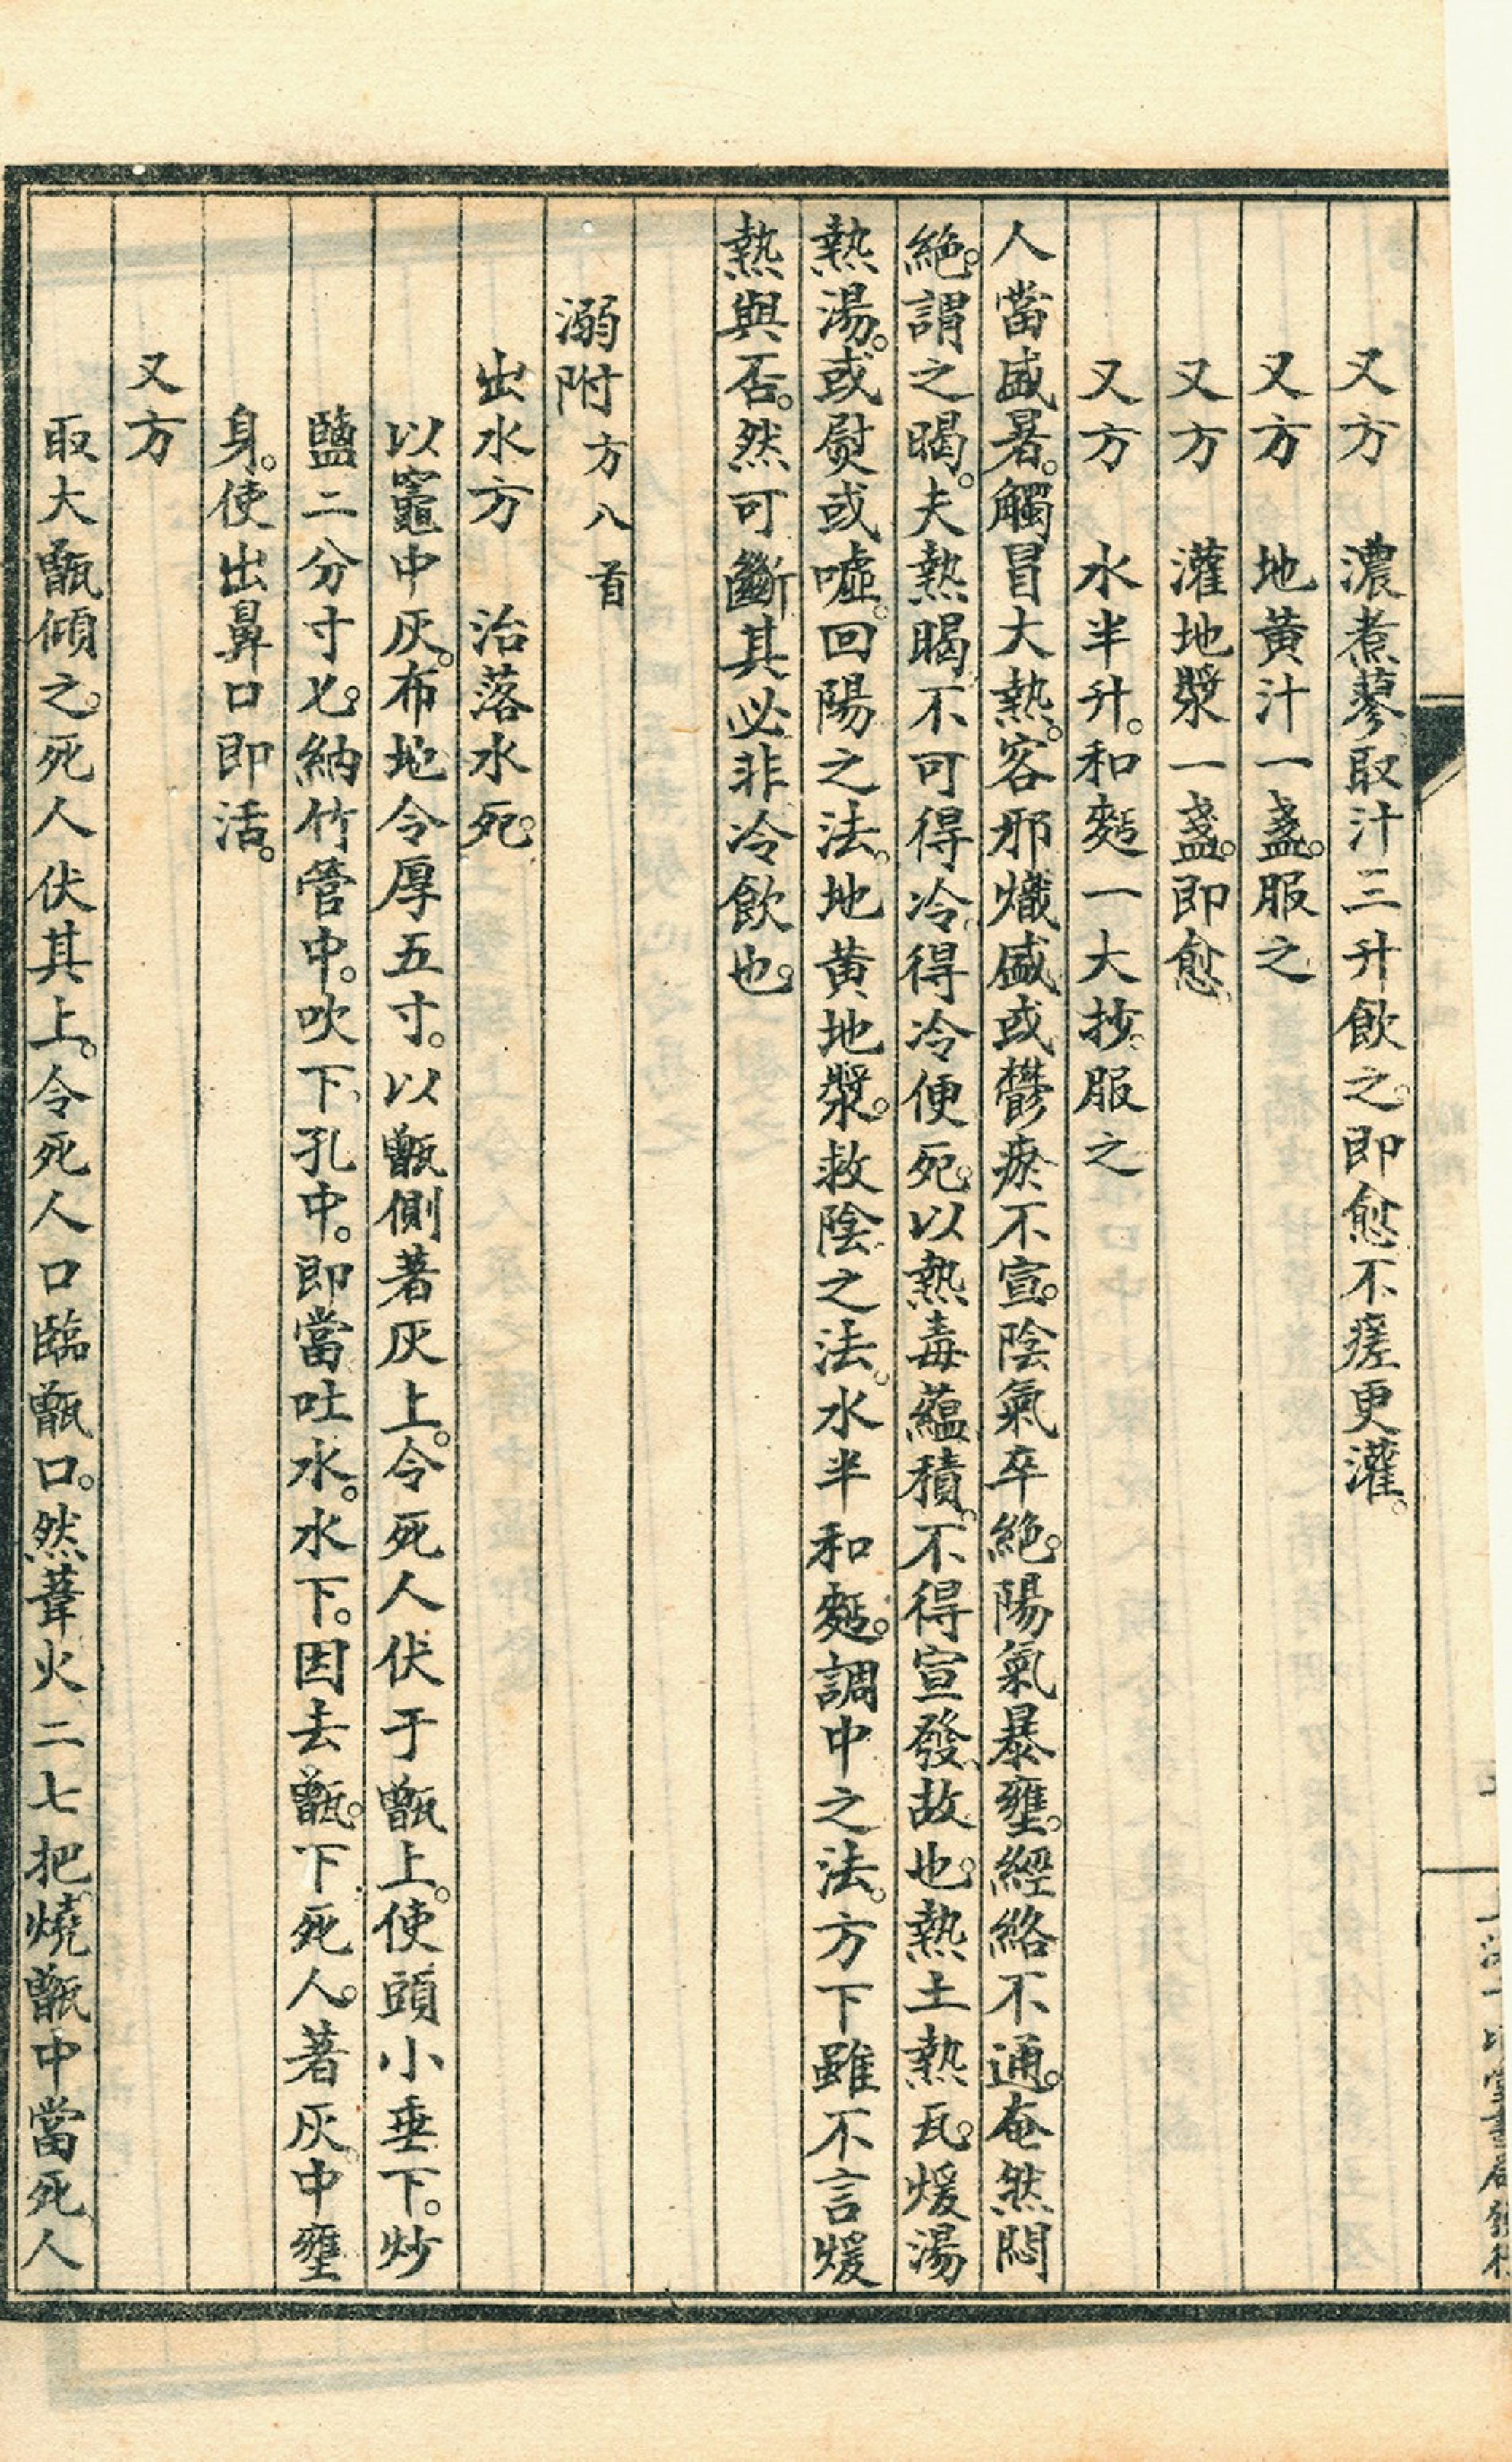 又方　濃煮蓼取汁三升飲之。即愈不瘥更灌。
又方　地黃汁一盞。服之
又方　灌地漿一盞。即愈
又方　水半升。和麪一大抄。服之
人當盛暑。觸冒大熱。客邪熾盛或鬱瘀不宣。陰氣卒絶。陽氣暴壅。經絡不通。奄然悶
絶。謂之暍。夫熱暍不可得冷。得冷便死。以熱毒蘊積。不得宣發故也。熱土熱瓦。煖湯
熱湯。或熨或噓。回陽之法。地黃地漿。救陰之法。水半和麪。調中之法。方下雖不言煖
熱與否。然可斷其必非冷飲也。
溺附方八首
出水方　治落水死。
以竈中灰。布地令厚五寸。以甑側著灰上。令死人伏于甑上。使頭小垂下。炒
鹽二分寸匕。納竹管中。吹下孔中。即當吐水。水下。因去甑。下死人。著灰中壅
身。使出鼻口即活。
又方
取大甑傾之。死人伏其上。令死人口臨甑口。然葦火二七把。燒甑中當死人